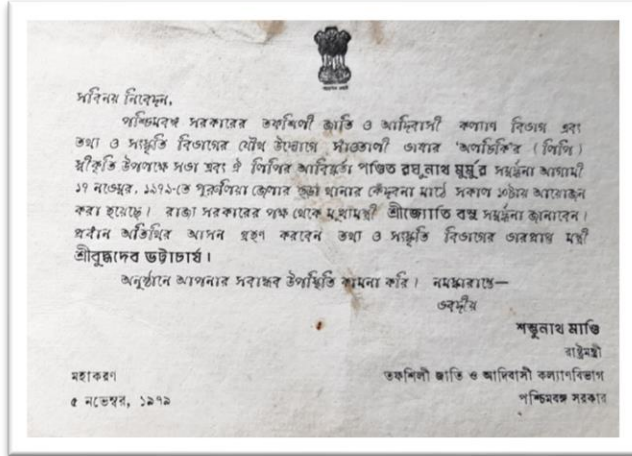 সবিনয় নিবেদন,
পশ্চিমবঙ্গ সরকারের তফশিলী জাতি ও আদিবাসী কল্যাণ বিভাগ এবং
তথ্য ও সংস্কৃতি বিভাগের যৌথ উদ্যোগে সাঁওতালী ভাষার 'অলচিকি'র (লিপি)
স্বীকৃতি উপলক্ষে সভা এবং ঐ লিপির আবিষ্কর্তা পণ্ডিত রঘুনাথ মুর্মুর সম্বর্দ্ধনা আগামী
১৭ নভেম্বর, ১৯৭৯-তে পুরুলিয়া জেলার হুড়া থানার কেঁদবনা মাঠে সকাল ১০টায় আয়োজন
করা হয়েছে। রাজ্য সরকারের পক্ষ থেকে মুখ্যমন্ত্রী শ্রীজ্যোতি বসু সম্বর্দ্ধনা জানাবেন।
প্রধান অতিথির আসন গ্রহণ করবেন তথ্য ও সংস্কৃতি বিভাগের ভারপ্রাপ্ত মন্ত্রী
শ্রীবুদ্ধদেব ভট্টাচার্য।
অনুষ্ঠানে আপনার সবান্ধব উপস্থিতি কামনা করি। নমস্কারান্তে—
ভবদীয়
শম্ভুনাথ মাণ্ডি
রাষ্ট্রমন্ত্রী
মহাকরণ তফশিলী জাতি ও আদিবাসী কল্যাণবিভাগ
৫ নভেম্বর, ১৯৭৯ পশ্চিমবঙ্গ সরকার